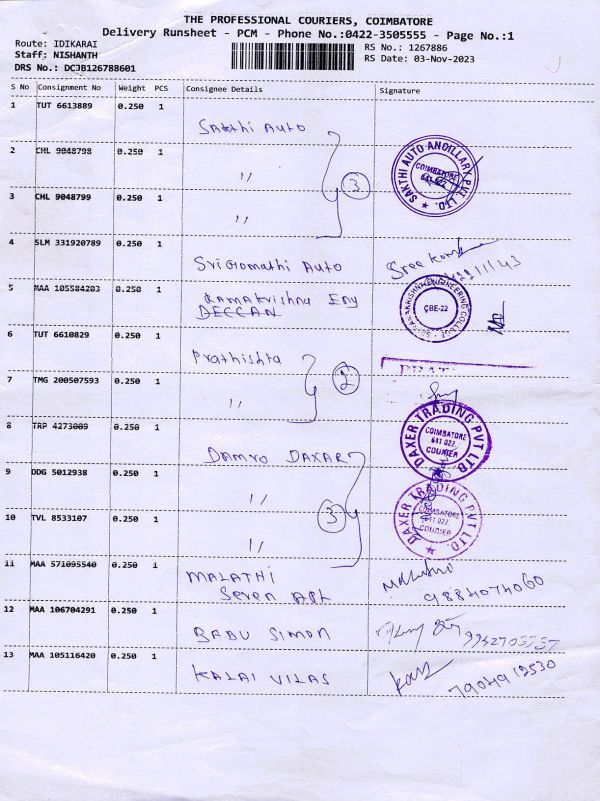 THE PROFESSIONAL COURIERS, COIMBATORE
Delivery Runsheet - PCM - Phone No.:0422-3505555 - Page No.:1
Route: IDIKARAI
RS No.: 1267886
Staff: NISHANTH
RS Date: 03-Nov-2023
DRS No.: DCJB126788601
S No Consignment No Weight PCS Consignee Details Signature
1 TUT 6613889 0.250 1 Sakthi Auto
2 CHL 9048798 0.250 1 ,,
3 CHL 9048799 0.250 1 ,,
3
SAKTHI AUTO ANCILLARY PVT. LTD.
COIMBATORE
641 022
4 SLM 331920789 0.250 1 Sri Gomathi Auto
5 MAA 105584203 0.250 1 Ramakrishna Eng
DECCAN
ENGINEERING COLLEGE
CBE-22
6 TUT 6610829 0.250 1 Prathishta
7 TMG 200507593 0.250 1 ,,
2
8 TRP 4273009 0.250 1 DAMRO DAXAR
9 DDG 5012938 0.250 1 ,,
10 TVL 8533107 0.250 1 ,,
3
DAXER TRADING PVT LTD
COIMBATORE
641 022.
COURIER
DAXER TRADING PVT LTD.
COIMBATORE
641 022.
COURIER
11 MAA 571095540 0.250 1 MALATHI
Seven
9884074060
12 MAA 106704291 0.250 1 BABU SIMON
13 MAA 105116420 0.250 1 KALAI VILAS